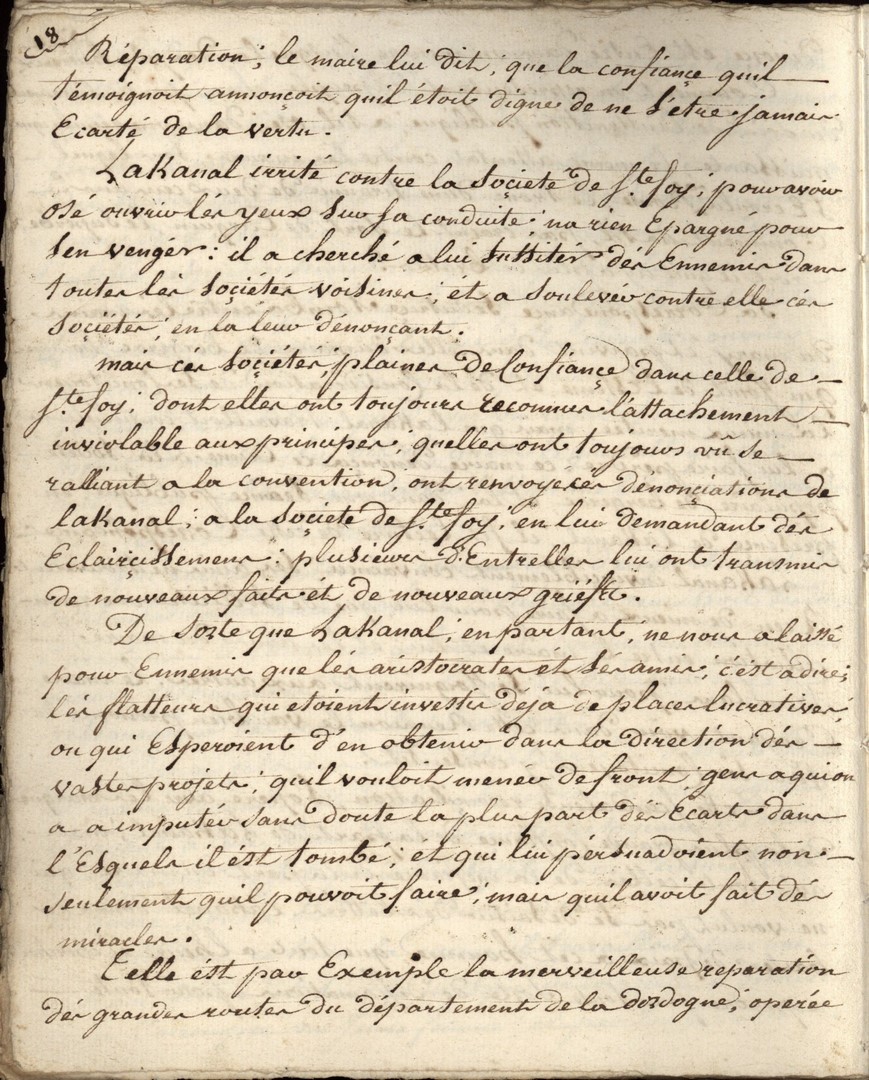 18
Réparation; le maire lui dit; que la confiance quil
témoignoit annonçoit quil étoit digne de ne s'etre jamais
Ecarté de la vertu.
LaKanal irrité contre la société de S.te foy; pour avoir
osé ouvrir lés yeux sur sa conduite; na rien Epargné pour
sen vengér: il a cherché a lui sussitér dés Ennemis dans
toutes lés sociétés voisines; ét a soulevér contre elle cés
sociétés; en la leur dénonçant.
mais cés sociétés; plaines de Confiance dans celle de
S.te foy; dont elles ont toujours reconnues l'attachement
inviolable aux principes; quelles ont toujours vû se
ralliant a la convention, ont renvoyé cés dénonciations de
laKanal; a la société de S.te foy; en lui demandant dés
Eclaircissemens: plusieurs d'Entrelles lui ont transmis
de nouveaux faits ét de nouveaux griéfs.
De sorte que LaKanal; en partant; ne nous a laissé
pour Ennemis que lés aristocrates ét sés amis; c'ést a dire;
lés flatteurs qui etoient investis déja de places lucratives;
ou qui Esperoient d'en obtenir dans la direction dés
vastes projets; quil vouloit menér de front; gens a qui on
a a imputér sans doute la plus part dés Ecarts dans
l'Esquels il ést tombé; ét qui lui pérsuadoient non
seulement quil pouvoit faire; mais quil avoit fait dés
miracles.
Telle ést par Exemple la merveilleuse reparation
dés grandes routes du département de la dordogne; operée